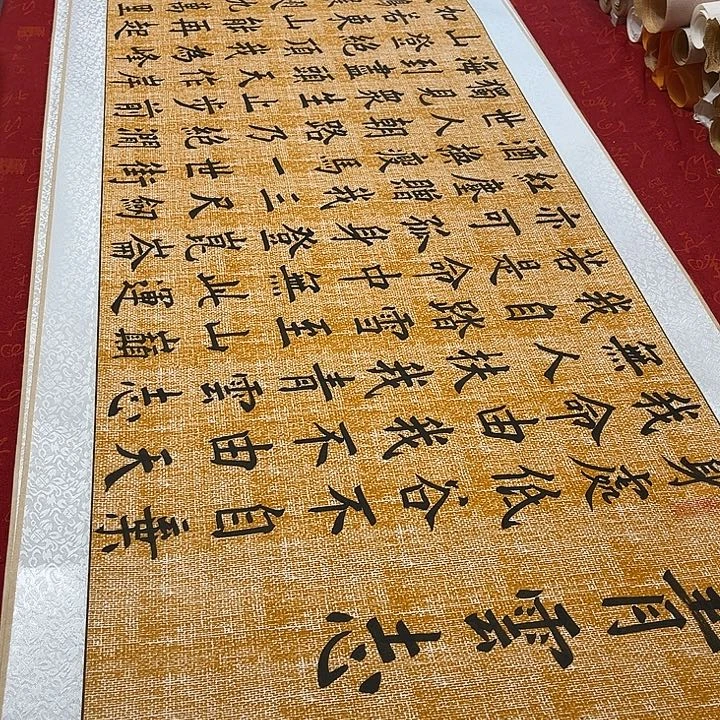 青雲志
身處低谷不自棄
我命由我不由天
無人扶我青雲志
我自踏雪至山巔
若是命中無此運
亦可孤身登崑崙
紅塵贈我三尺劍
酒換瘦馬一世街
世人朝路乃絕澗
獨見衆生止步前
海到盡頭天作岸
山登絕頂我為峰
如若東山能再起
萬里